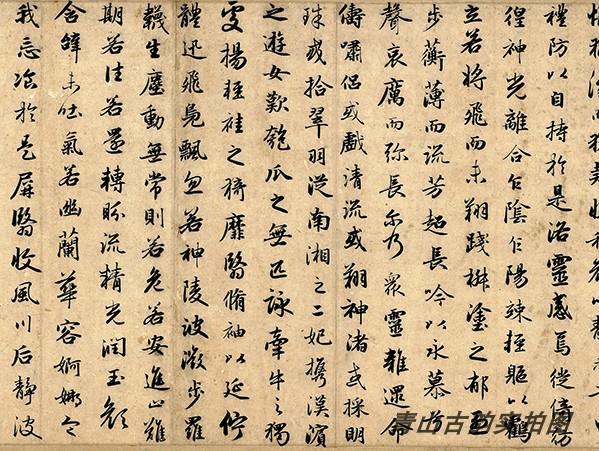 禮防以自持於是洛靈感焉徙倚彷
徨神光離合乍陰乍陽竦輕軀以鶴
立若將飛而未翔踐椒塗之郁烈
步蘅薄而流芳超長吟以永慕兮
聲哀厲而彌長爾乃衆靈雜遝命
儔嘯侶或戲清流或翔神渚或採明
珠或拾翠羽從南湘之二妃攜漢濱
之遊女歎匏瓜之無匹詠牽牛之獨
處揚輕袿之猗靡翳脩袖以延佇
體迅飛鳧飄忽若神陵波微步羅
韈生塵動無常則若危若安進止難
期若往若還轉眄流精光潤玉顏
含辭未吐氣若幽蘭華容婀娜令
我忘飡於是屏翳收風川后靜波
壽山古韵实拍图